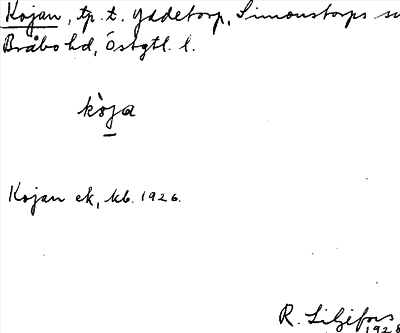 Kojan, tp. t. Yddetorp, Simonstorps sn
Bråbo hd, Östgtl. l.
kòja
Kojan ek, kb. 1926.
R. Liljefors
1928